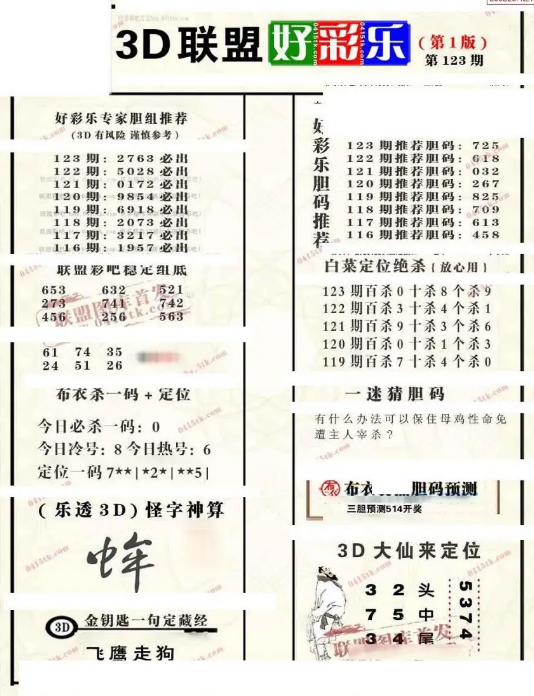 3D联盟好彩乐
(第1版)
第123期
好彩乐专家胆组推荐
(3D有风险 谨慎参考)
123期: 2763必出
122期: 5028必出
121期: 0172必出
120期: 9854必出
119期: 6918必出
118期: 2073必出
117期: 3217必出
116期: 1957必出
联盟彩吧稳定组底
653 632 521
273 741 742
456 256 563
61 74 35
24 51 26
布衣杀一码+定位
今日必杀一码: 0
今日冷号: 8 今日热号: 6
定位一码 7**|*2*|**5|
(乐透3D)怪字神算
3D 金钥匙一句定藏经
飞鹰走狗
好彩乐胆码推荐
123期推荐胆码: 725
122期推荐胆码: 618
121期推荐胆码: 032
120期推荐胆码: 267
119期推荐胆码: 825
118期推荐胆码: 709
117期推荐胆码: 613
116期推荐胆码: 458
白菜定位绝杀(放心用)
123期百杀0十杀8个杀9
122期百杀3十杀4个杀1
121期百杀9十杀3个杀6
120期百杀0十杀1个杀3
119期百杀7十杀4个杀0
一迷猜胆码
有什么办法可以保住母鸡性命免
遭主人宰杀?
布衣 胆码预测
三胆预测514开奖
3D大仙来定位
3 2 头
7 5 中
3 4 尾
5374
联盟图库首发
0415tk.com